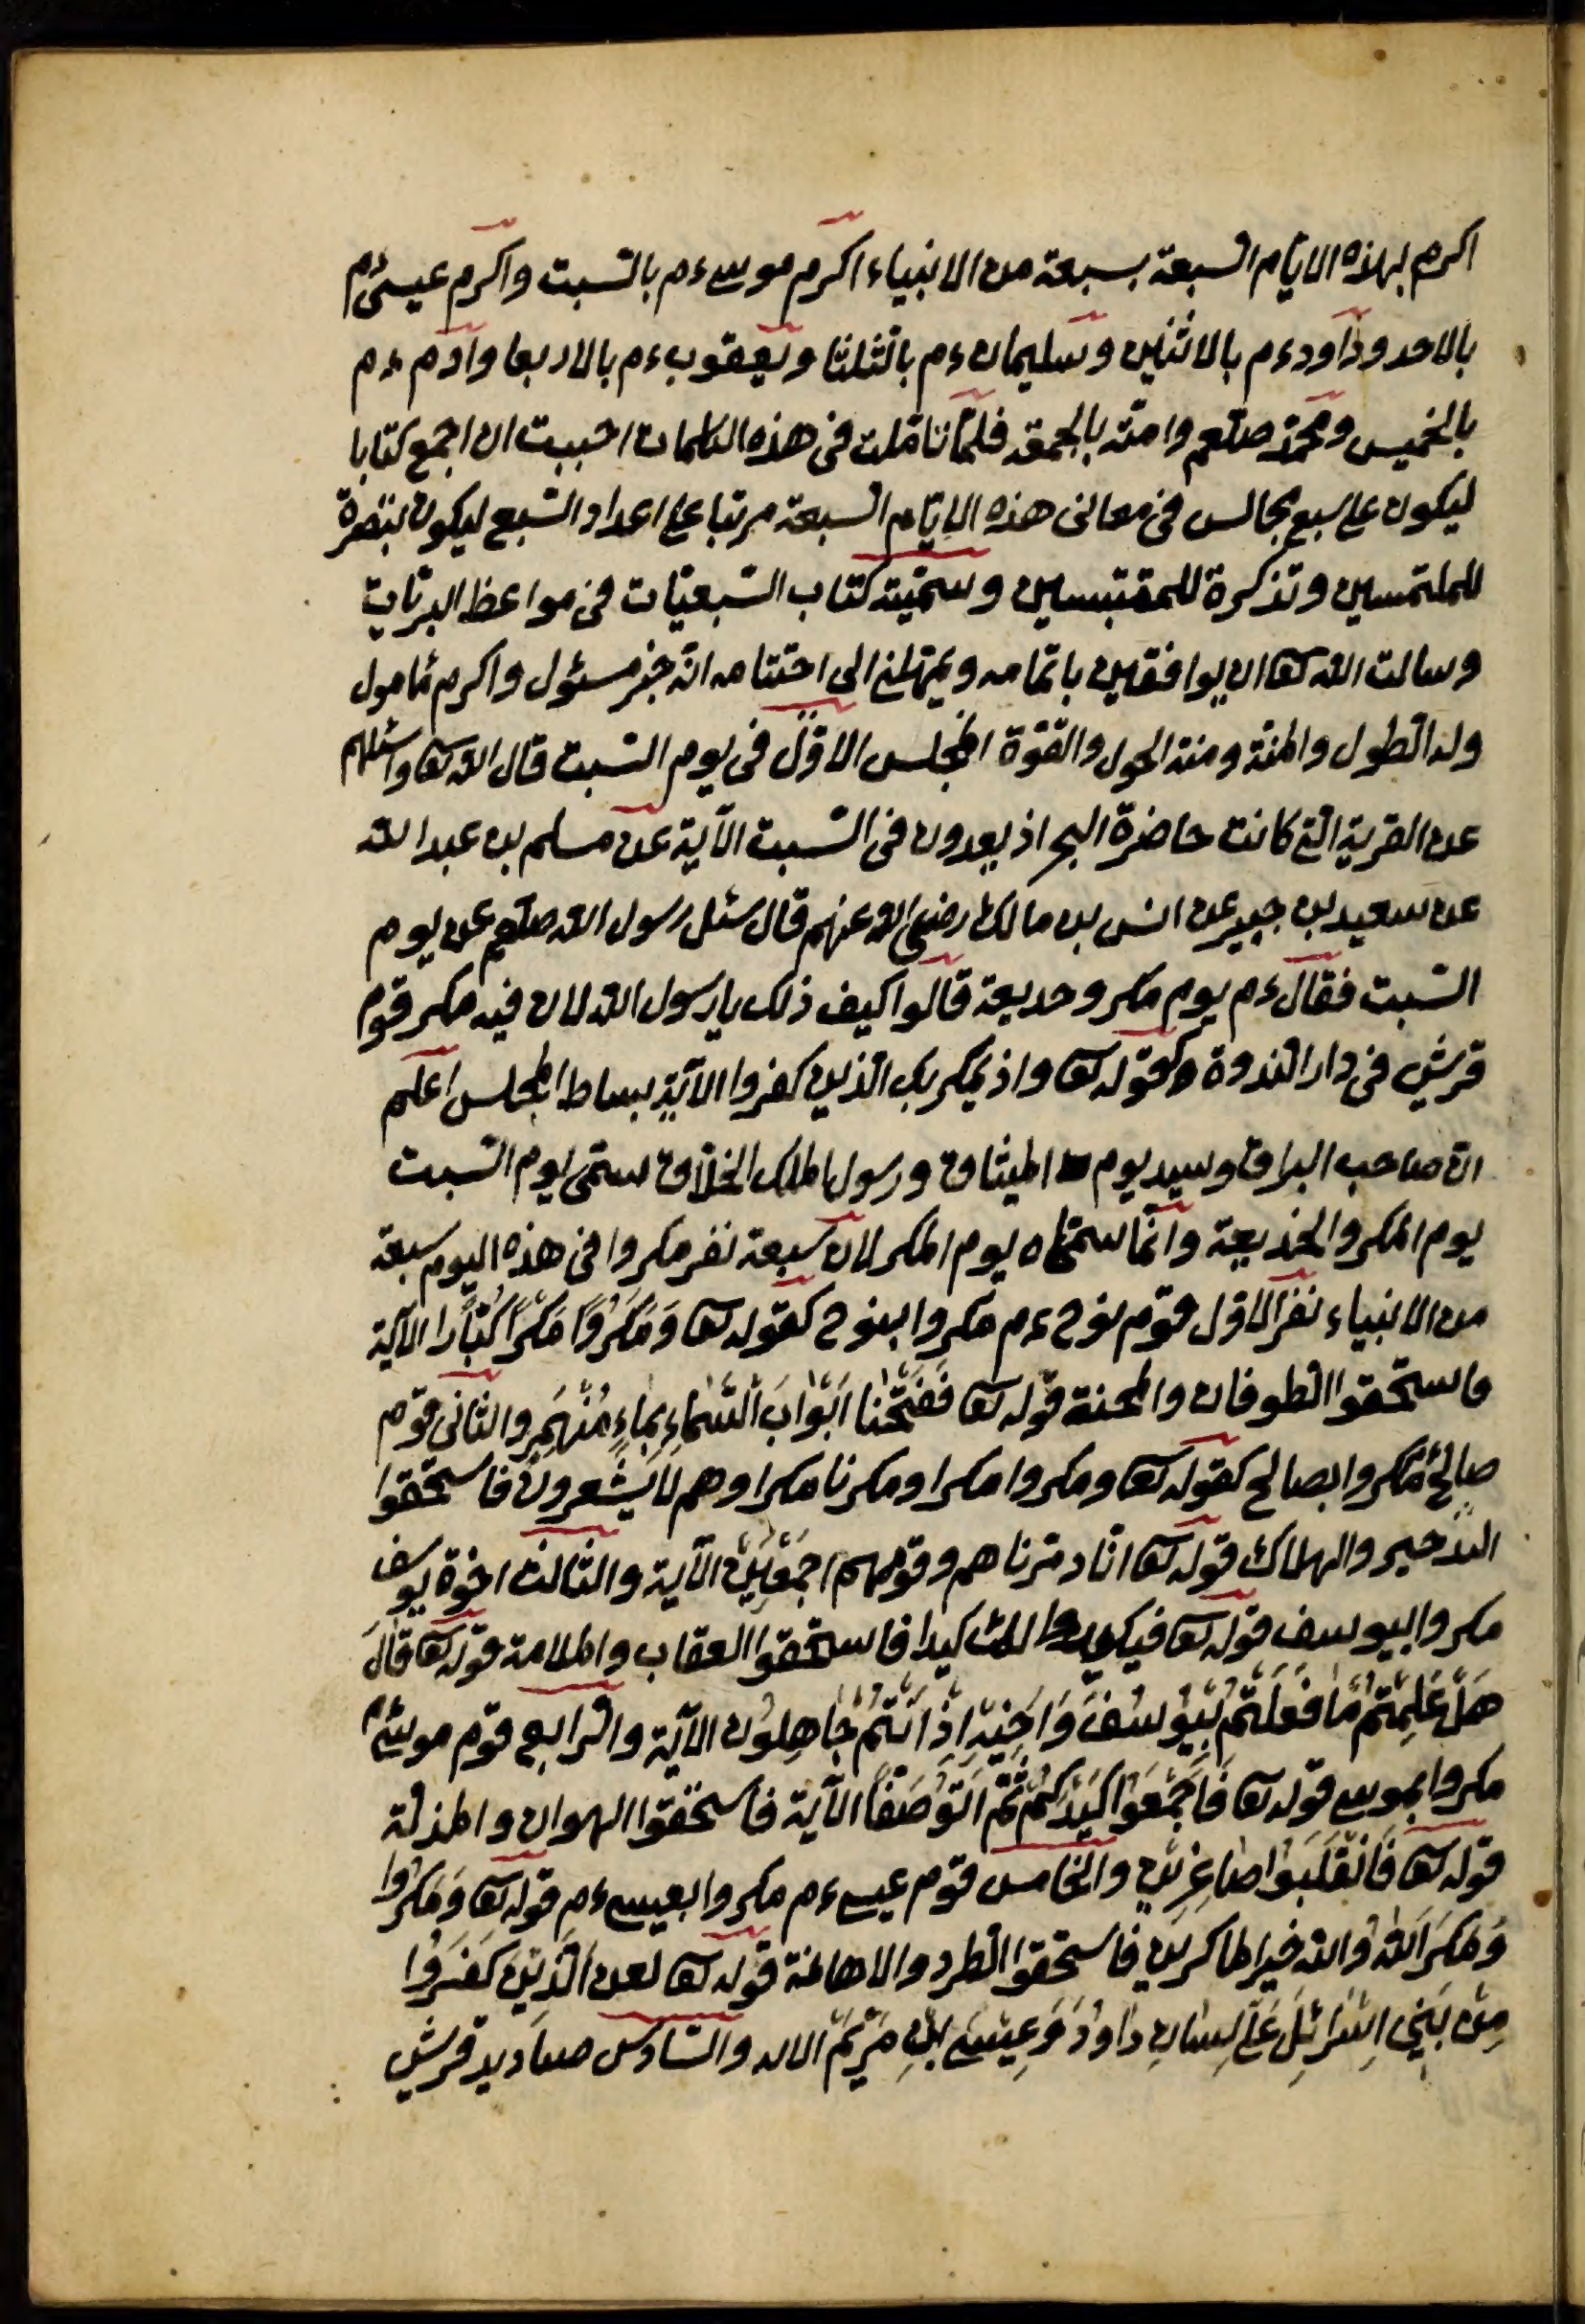 اكرم بهذه الايّام السّبعة بسبعة من الانبياء اكرم موسى ءم بالسّبت واكرم عيسى ءم
بالاحد وداود ءم بالاثنين وسليمان ءم بالثلثا ويعقوب ءم بالاربعا وآدم ءم
بالخميس ومحمّد صلعم وامّته بالجمعة فلمّا تامّلت فى هذه الكلمات احببت ان اجمع كتابا
ليكون على سبع مجالس فى معانى هذه الايّام السّبعة مرتبا على اعداد السّبع ليكون تبصرة
للملتمسين وتذكرة للمقتبسين وسمّيته كتاب السّبعيّات فى مواعظ البريّات
وسالت الله تعا ان يوافقنى باتمامه ويمهلنى الى اختتامه انّه خير مسئول واكرم مامول
وله الطول والمنّة ومنه الحول والقوّة المجلس الاوّل فى يوم السّبت قال الله تعا واسئلهم
عن القرية التى كانت حاضرة البحر اذ يعدون فى السّبت الآية عن مسلم بن عبد الله
عن سعيد بن جبير عن انس بن مالك رضى الله عنهم قال سئل رسول الله صلعم عن يوم
السّبت فقال ءم يوم مكر وخديعة قالوا كيف ذلك يا رسول الله لان فيه مكر قوم
قريش فى دار النّدوة كقوله تعا واذ يمكر بك الّذين كفروا الآية بساط المجلس اعلم
انّ صاحب البراق وسيد يوم الميثاق ورسول الملك الخلّاق سمّى يوم السّبت
يوم المكر والخديعة وانّما سمّاه يوم المكر لان سبعة نفر مكروا فى هذه اليوم سبعة
من الانبياء نفر الاوّل قوم نوح ءم مكروا بنوح كقوله تعا وَمَكَرُوا مَكْرًا كُبَّارًا الآية
فاستحقوا الطوفان والمحنة قوله تعا فَفَتَحْنَا اَبْوَابَ السَّمَاءِ بِمَاءٍ مُنْهَمِرٍ والثانى قوم
صالح مكروا بصالح كقوله تعا ومكروا مكرا ومكرنا مكرا وهم لا يشعرون فاستحقوا
التدمير والهلاك قوله تعا انّا دمّرناهم وقومهم اجمعين الآية والثالث اخوة يوسف
مكروا بيوسف قوله تعا فيكيدوا لك كيدا فاستحقوا العقاب والملامة قوله تعا قَالَ
هَلْ عَلِمْتُمْ مَا فَعَلْتُمْ بِيُوسُفَ وَاَخِيهِ اِذْ اَنْتُمْ جَاهِلُونَ الآية والرّابع قوم موسى ءم
مكروا بموسى قوله تعا فَاَجْمِعُوا كَيْدَكُمْ ثُمَّ ائْتُوا صَفًّا الآية فاستحقوا الهوان والمذلّة
قوله تعا فَانْقَلَبُوا صَاغِرِينَ والخامس قوم عيسى ءم مكروا بعيسى ءم قوله تعا وَمَكَرُوا
وَمَكَرَ اللهُ والله خير الماكرين فاستحقوا الطرد والاهانة قوله تعا لعن الَّذِينَ كَفَرُوا
مِنْ بَنِى اِسْرَائِلَ عَلَى لِسَانِ دَاوُدَ وَعِيسَى ابْنِ مَرْيَمَ الاىه والسّادس صناديد قريش